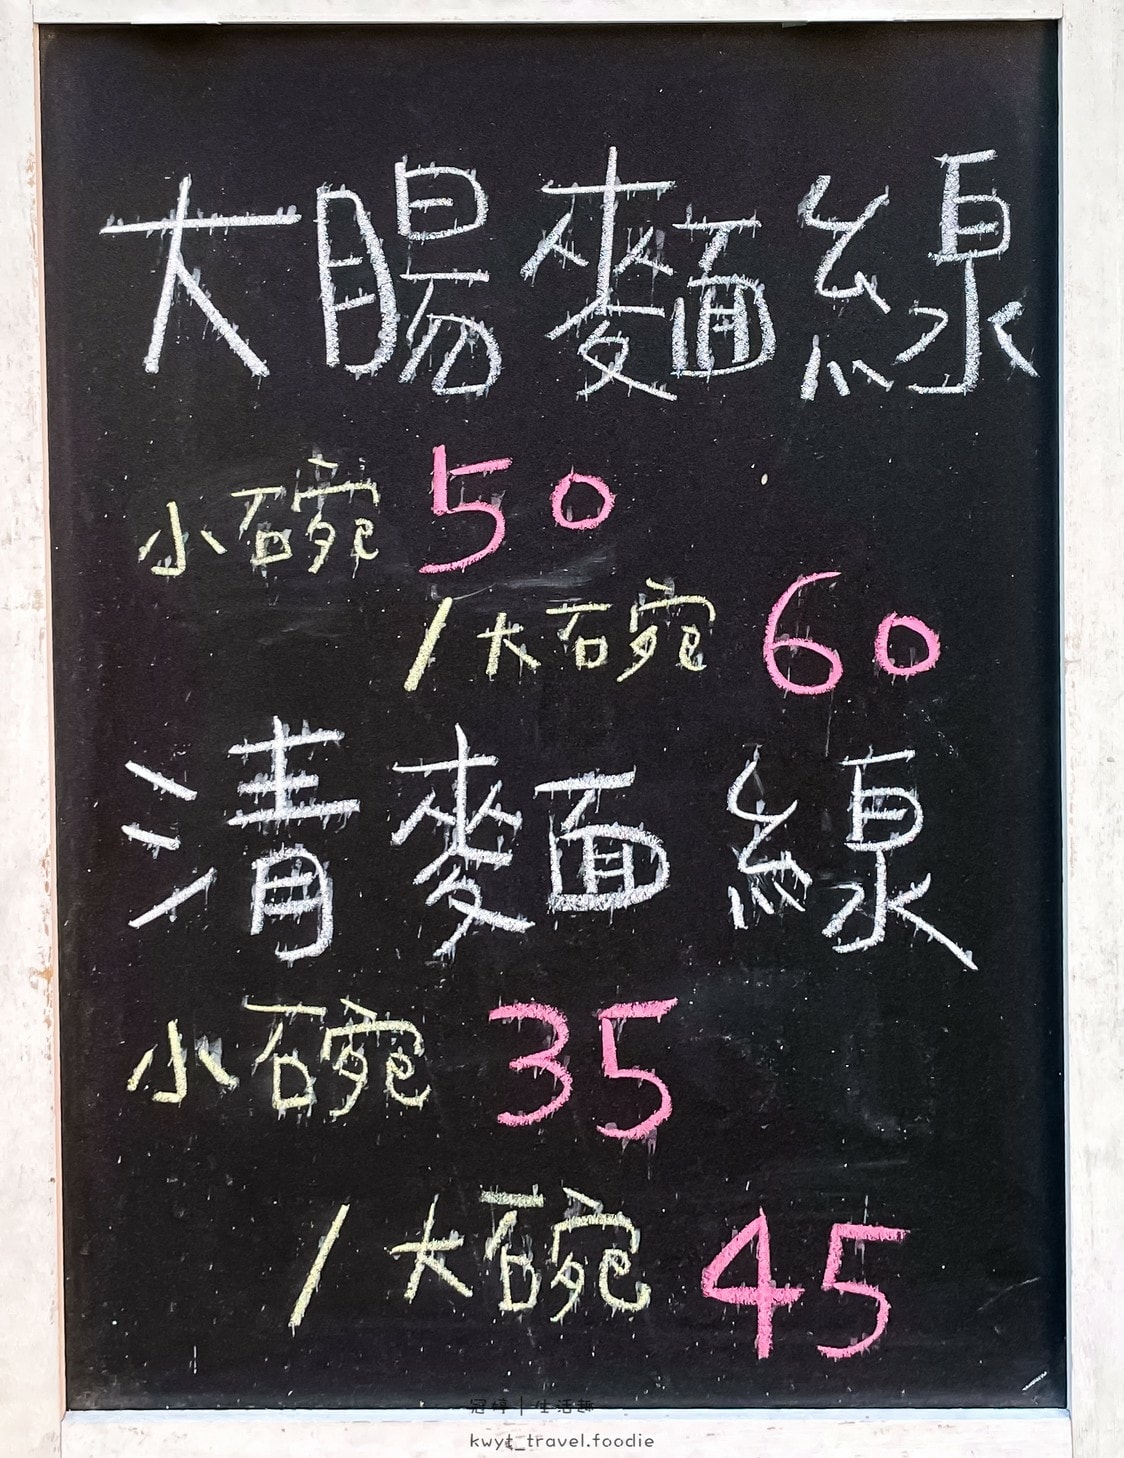 大腸麵線
小碗 50
/大碗 60
清麵線
小碗 35
/大碗 45
冠婷|生活趣
kwyt_travel.foodie